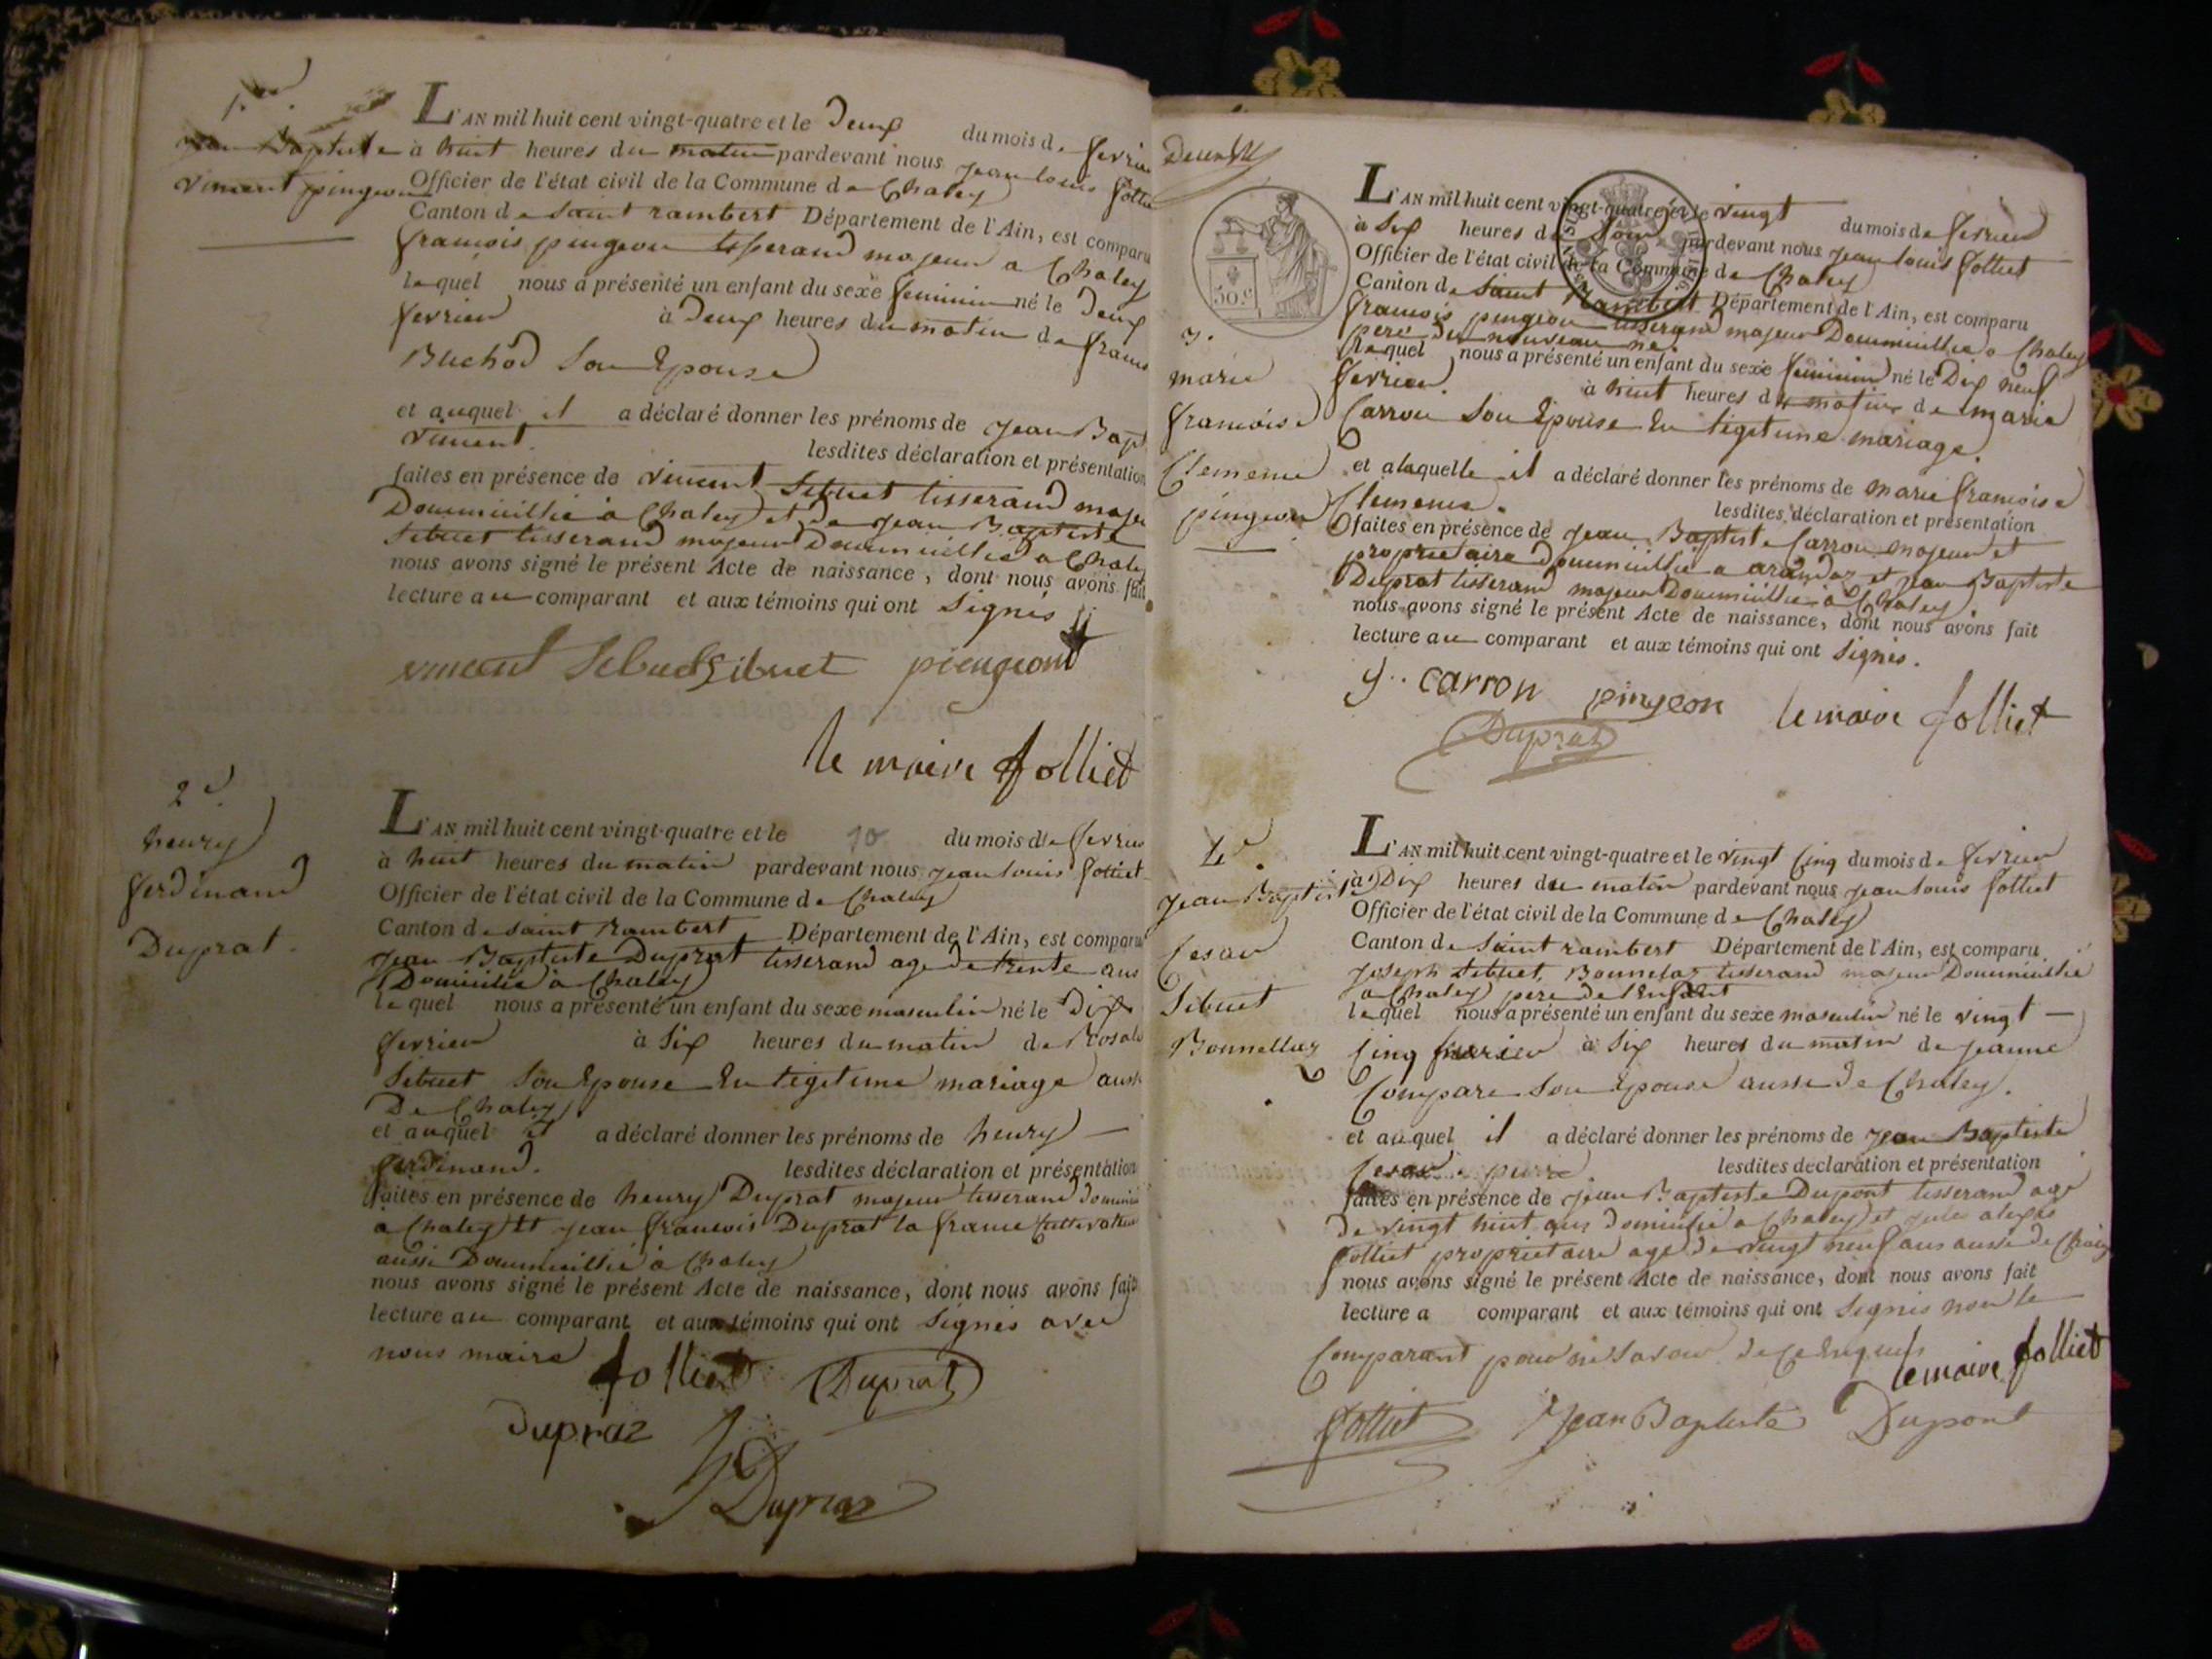 1.
Jean Baptiste
vincent pingeon
L'AN mil huit cent vingt-quatre et le Deux du mois de fevrier
à huit heures du matin pardevant nous jean louis folliet
Officier de l'état civil de la Commune de Chaley
Canton de saint rambert Département de l'Ain, est comparu
francois pingeon tisserand majeur a Chaley
lequel nous a présenté un enfant du sexe feminin né le Deux
fevrier à Deux heures du matin de
Buchod Son Epouse
et auquel il a déclaré donner les prénoms de jean Bapt
vincent. lesdites déclaration et présentation
faites en présence de vincent Sibuet tisserand majeu
Doumicillié à Chaley et de jean Baptiste
Sibuet tisserand majeur Doumicillié a Chaley
nous avons signé le présent Acte de naissance, dont nous avons fait
lecture au comparant et aux témoins qui ont Signés
vincent Sibuet Sibuet piengeont
le maire folliet
2e
henry
ferdinand
Duprat.
L'AN mil huit cent vingt-quatre et le 10 du mois de fevrier
à huit heures du matin pardevant nous jean louis folliet
Officier de l'état civil de la Commune de Chaley
Canton de saint Rambert Département de l'Ain, est comparu
jean Baptiste Duprat tisserand age de trente ans
Domicilié à Chaley
lequel nous a présenté un enfant du sexe masculin né le Dix
fevrier à Six heures du matin de Rosal
Sibuet Son Epouse En legitime mariage aussi
De Chaley
et auquel il a déclaré donner les prénoms de henry
ferdinand. lesdites déclaration et présentation
faites en présence de henry Duprat majeur tisserand
à Chaley Et jean francois Duprat la france
aussi Doumicillié à Chaley
nous avons signé le présent Acte de naissance, dont nous avons fait
lecture au comparant et aux témoins qui ont Signés avec
nous maire folliet Duprat
dupraz
Dupraz
50 c
3.
marie
francoise
Clemence
pingeon
L'AN mil huit cent vingt-quatre et le vingt du mois de fevrier
à Six heures du Soir pardevant nous jean louis folliet
Officier de l'état civil de la Commune de Chaley
Canton de Saint Rambert Département de l'Ain, est comparu
francois pingeon tisserand majeur Doumicillié a Chaley
pere du nouveau né.
lequel nous a présenté un enfant du sexe feminin né le Dix neuf
fevrier. à huit heures du matin de marie
Carron Son Epouse En legitime mariage
et a laquelle il a déclaré donner les prénoms de marie francoise
Clemence. lesdites déclaration et présentation
faites en présence de jean Baptiste Carron majeur et
proprietaire Doumicillié a arandaz et jean Baptiste
Duprat tisserand majeur Doumicillié à Chaley.
nous avons signé le présent Acte de naissance, dont nous avons fait
lecture au comparant et aux témoins qui ont Signés.
carron pingeon le maire folliet
Duprat
4e.
jean Baptiste
Cesar
Sibuet
Bonnellaz
L'AN mil huit cent vingt-quatre et le vingt Cinq du mois de fevrier
à Dix heures du matin pardevant nous jean louis folliet
Officier de l'état civil de la Commune de Chaley
Canton de Saint rambert Département de l'Ain, est comparu
joseph Sibuet, Bonnelaz tisserand majeur Doumicillié
a Chaley pere de l'Enfant
lequel nous a présenté un enfant du sexe masculin né le vingt
Cinq fevrier à Six heures du matin de jeanne
Compare Son Epouse aussi de Chaley.
et auquel il a déclaré donner les prénoms de jean Baptiste
Cesar. lesdites déclaration et présentation
faites en présence de jean Baptiste Dupont tisserand age
de vingt huit ans domicilié a Chaley et jule alexis
folliet proprietaire age de vingt neuf ans aussi de Chaley
nous avons signé le présent Acte de naissance, dont nous avons fait
lecture a comparant et aux témoins qui ont Signés non le
Comparant pour ne Savoir de ce Enquis
le maire folliet
folliet Jean Baptiste Dupont